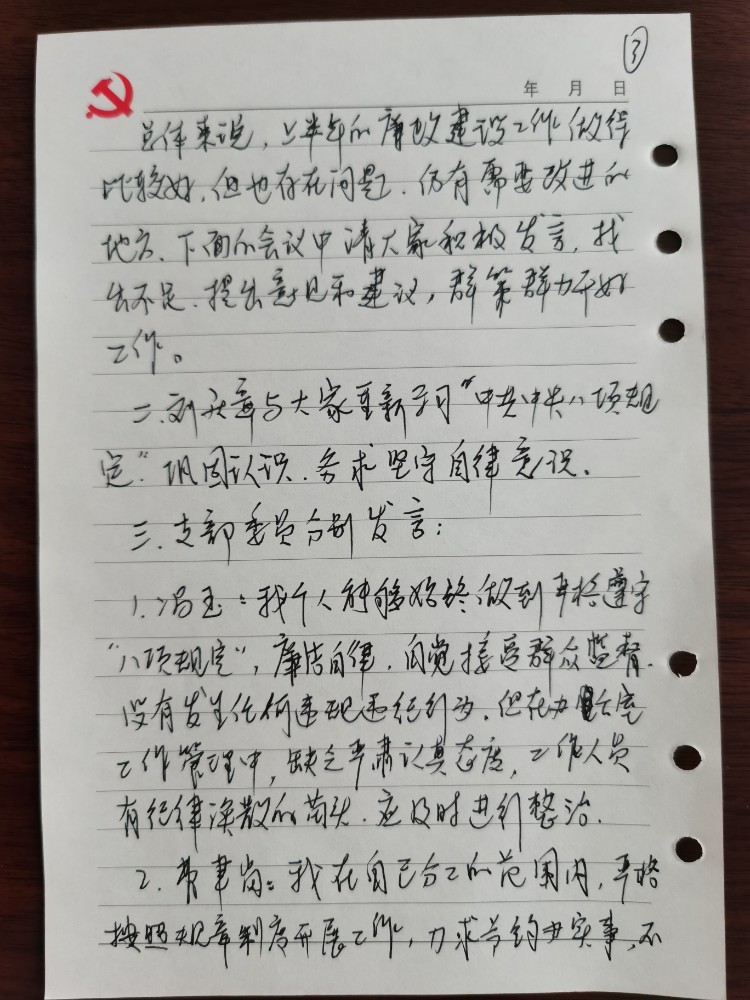 ③
年 月 日
总体来说,上半年的廉政建设工作做得
比较好,但也存在问题.仍有需要改进的
地方.下面的会议中请大家积极发言,找
出不足.提出意见和建议,群策群力干好
工作。
二.刘 章与大家重新学习“中共中央八项规
定”巩固认识.务求坚守自律意识.
三.支部委员分别发言:
1.冯玉:我个人能够始终做到严格遵守
“八项规定”,廉洁自律.自觉接受群众监督.
没有发生任何违规违纪行为.但在办公室
工作管理中,缺乏严肃认真态度,工作人员
有纪律涣散的苗头.应及时进行整治.
2. 建 :我在自己分工的范围内,严格
按照规章制度开展工作,力求节约办实事,不